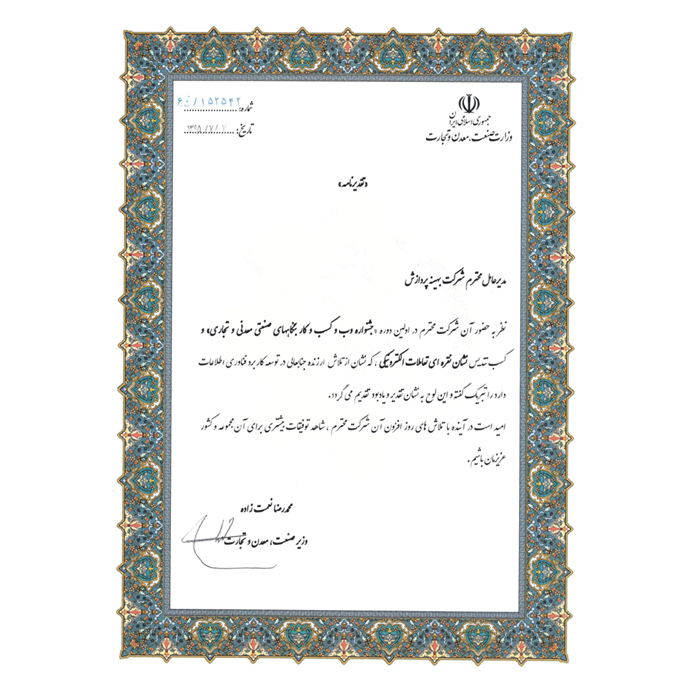 جمهوری اسلامی ایران
وزارت صنعت، معدن و تجارت
شماره: ۶۰/۱۵۲۵۴۲
تاریخ:
«تقدیرنامه»
مدیرعامل محترم شرکت بهینه پردازش
نظر به حضور آن شرکت محترم در اولین دوره «جشنواره وب و کسب و کار بنگاههای صنعتی معدنی و تجاری» و
کسب تندیس نشان نقره ای تعاملات الکترونیکی، که نشان از تلاش ارزنده جنابعالی در توسعه کاربرد فناوری اطلاعات
دارد را تبریک گفته و این لوح به نشان تقدیر و یادبود تقدیم می گردد.
امید است در آینده با تلاش های روز افزون آن شرکت محترم، شاهد توفیقات بیشتری برای آن مجموعه و کشور
عزیزمان باشیم.
محمدرضا نعمت زاده
وزیر صنعت، معدن و تجارت